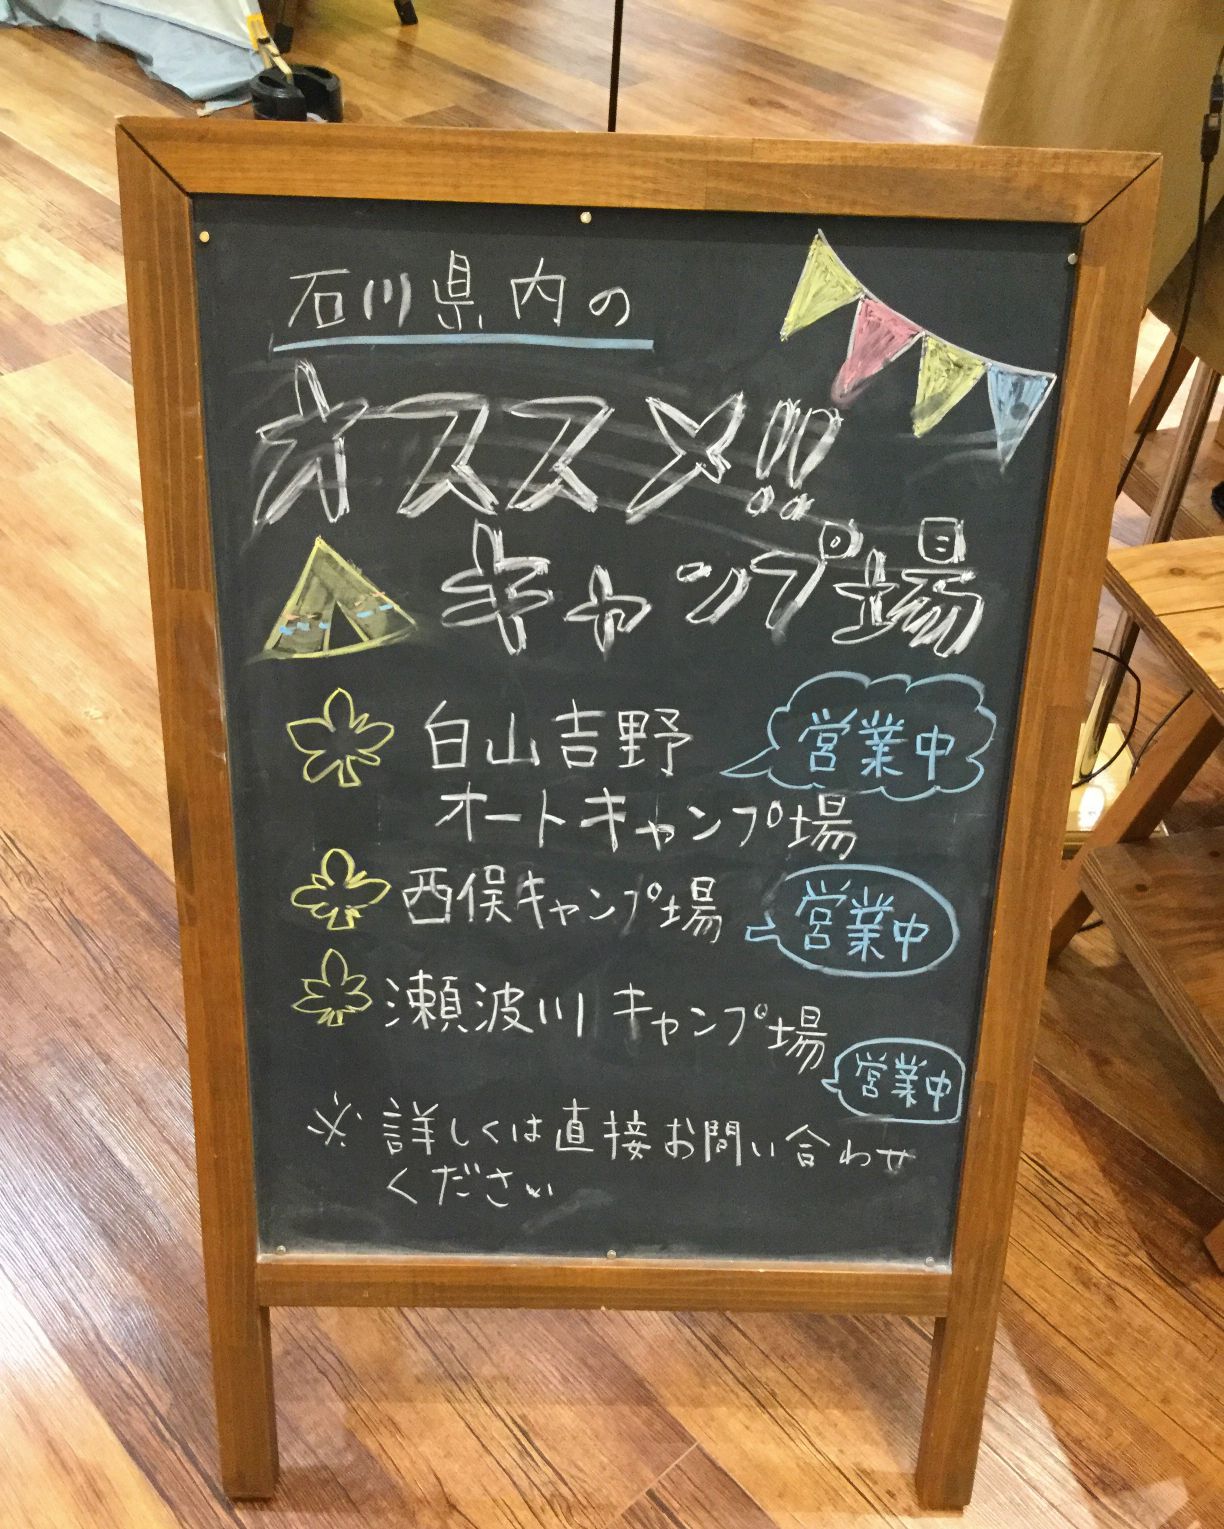 石川県内の
オススメ!!
キャンプ場
白山吉野 営業中
オートキャンプ場
西俣キャンプ場 営業中
瀬波川 キャンプ場
営業中
※ 詳しくは直接お問い合わせ
ください